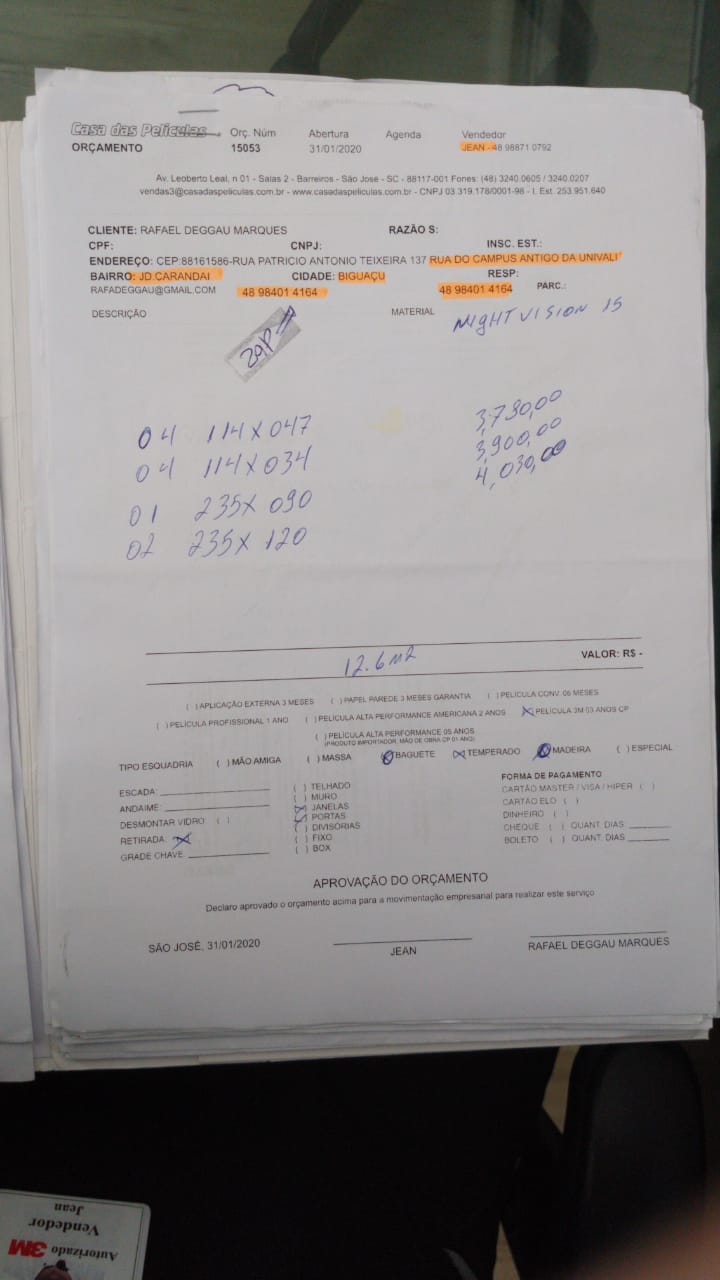 Casa das Películas
ORÇAMENTO
Orç. Núm Abertura Agenda Vendedor
15053 31/01/2020 JEAN - 48 98871 0792
Av. Leoberto Leal, n 01 - Salas 2 - Barreiros - São Jose - SC - 88117-001 Fones: (48) 3240.0605 / 3240.0207
vendas3@casadaspeliculas.com.br - www.casadaspeliculas.com.br - CNPJ 03.319.178/0001-98 - I. Est. 253.951.640
CLIENTE: RAFAEL DEGGAU MARQUES RAZÃO S:
CPF: CNPJ: INSC. EST.:
ENDEREÇO: CEP:88161586-RUA PATRICIO ANTONIO TEIXEIRA 137 RUA DO CAMPUS ANTIGO DA UNIVALI
BAIRRO: JD.CARANDAI CIDADE: BIGUAÇU RESP:
RAFADEGGAU@GMAIL.COM 48 98401 4164 48 98401 4164 PARC.:
DESCRIÇÃO MATERIAL NIGHT VISION 15
ZAP
04 114 X 047 3,790,00
04 114 X 034 3,900,00
01 235 X 090 4,030,00
02 235 X 120
12.6 m2 VALOR: R$ -
( ) APLICAÇÃO EXTERNA 3 MESES ( ) PAPEL PAREDE 3 MESES GARANTIA ( ) PELÍCULA CONV. 06 MESES
( ) PELÍCULA PROFISSIONAL 1 ANO ( ) PELÍCULA ALTA PERFORMANCE AMERICANA 2 ANOS (X) PELÍCULA 3M 03 ANOS CP
( ) PELÍCULA ALTA PERFORMANCE 05 ANOS
(PRODUTO IMPORTADOR, MÃO DE OBRA CP 01 ANO)
TIPO ESQUADRIA ( ) MÃO AMIGA ( ) MASSA (X) BAGUETE (X) TEMPERADO (X) MADEIRA ( ) ESPECIAL
ESCADA: ( ) TELHADO FORMA DE PAGAMENTO
ANDAIME: ( ) MURO CARTÃO MASTER / VISA / HIPER ( )
DESMONTAR VIDRO: ( ) (X) JANELAS CARTÃO ELO ( )
RETIRADA: X (X) PORTAS DINHEIRO ( )
GRADE CHAVE ( ) DIVISÓRIAS CHEQUE ( ) QUANT. DIAS:
( ) FIXO BOLETO ( ) QUANT. DIAS:
( ) BOX
APROVAÇÃO DO ORÇAMENTO
Declaro aprovado o orçamento acima para a movimentação empresarial para realizar este serviço
SÃO JOSÉ, 31/01/2020 JEAN RAFAEL DEGGAU MARQUES
Autorizado 3M
Vendedor
Jean